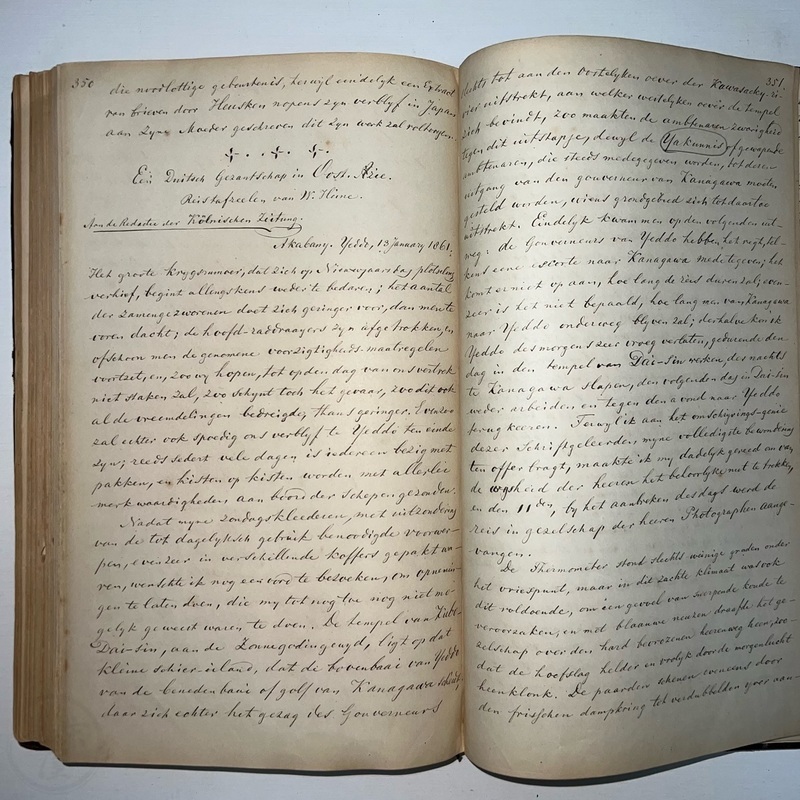 350
die noodlottige gebeurtenis, terwijl eindelyk een Extract
van brieven door Heusken nopens zyn verblyf in Japan
aan zyne Moeder geschreven dit zyn werk zal voltooyen.
Een Duitsch Gezantschap in Oost-Azie.
Reistafreelen van W. Heine.
Aan de Redactie der Kölnischen Zeitung.
Akabany. Yeddo, 13 January 1861.
Het groote krygsrumoer, dat zich op Nieuwjaarsdag plotseling
verhief, begint allengskens weder te bedaren; het aantal
der zamengezworenen doet zich geringer voor, dan men te
voren dacht; de hoofd-raddraayers zyn afgetrokken, en
ofschoon men de genomene voorzigtigheids-maatregelen
voortzet, en, zoo wy hopen, tot op den dag van ons vertrek
niet staken zal, zoo schynt toch het gevaar, zoo dit ook
al de vreemdelingen bedreigde, thans geringer. Evenzoo
zal echter ook spoedig ons verblyf te Yeddo ten einde
zyn; reeds sedert vele dagen is iedereen bezig met
pakken, en kisten op kisten worden met allerlei
merkwaardigheden aan boord der schepen gezonden.
Nadat myne zondagskleederen, met uitzondering
van de tot dagelyksch gebruik benoodigde voorwer-
pen, evenzeer in verschillende koffers gepakt wa-
ren, wenschte ik nog een oord te bezoeken, om opnemin-
gen te laten doen, die my tot nog toe nog niet mo-
gelyk geweest waren, te doen. De tempel van
Dai-Sin, aan de Zonnegodin gewyd, ligt op dat
kleine schier-eiland, dat de bovenbaai van Yeddo
van de benedenbaai of golf van Kanagawa scheidt,
daar zich echter het gezag des Gouverneurs
351
slechts tot aan den Oostelyken oever der Kawasacky-ri-
vier uitstrekt, aan welker westelyken oever de tempel
zich bevindt, zoo maakten de ambtenaren zwarigheid
tegen dit uitstapje, dewyl de Yakunnis of gewapende
ambtenaren, die steeds medegegeven worden, tot den
uitgang van den gouverneur van Kanagawa moeten
gesteld worden, wiens grondgebied zich tot daartoe
uitstrekt. Eindelyk kwam men op den volgenden uit-
weg: de Gouverneurs van Yeddo hebben het regt, tel-
kens eene escorte naar Kanagawa mede te geven; het
komt er niet op aan, hoe lang de reis duren zal; even-
zeer is het niet bepaald, hoe lang men van Kanagawa
naar Yeddo onderweg blyven zal; derhalve kon ik
Yeddo des morgens zeer vroeg verlaten, gedurende den
dag in den tempel van Dai-Sin werken, des nachts
te Kanagawa slapen, den volgenden dag in Dai-Sin
weder arbeiden, en tegen den avond naar Yeddo
terug keeren. Terwyl ik aan het omschryvings-genie
dezer Schriftgeleerden, myne volledigste bewondering
ten offer bragt, maakte ik my dadelyk gereed om van
de wysheid der heeren het behoorlyke nut te trekken,
en den 11den, by het aanbreken des dags werd de
reis in gezelschap der heeren Photographen aange-
vangen.
De Thermometer stond slechts weinige graden onder
het vriespunt, maar in dit zachte klimaat was ook
dit voldoende, om een gevoel van scherpende koude te
veroorzaken, en met blaauwe neuzen draafde het ge-
zelschap over den hard bevrozenen heerenweg heen, zoo-
dat de hoefslag helder en vrolyk door de morgenlucht
heenklonk. De paarden schenen eveneens door
den frisschen dampkring tot verdubbelden yver aan-